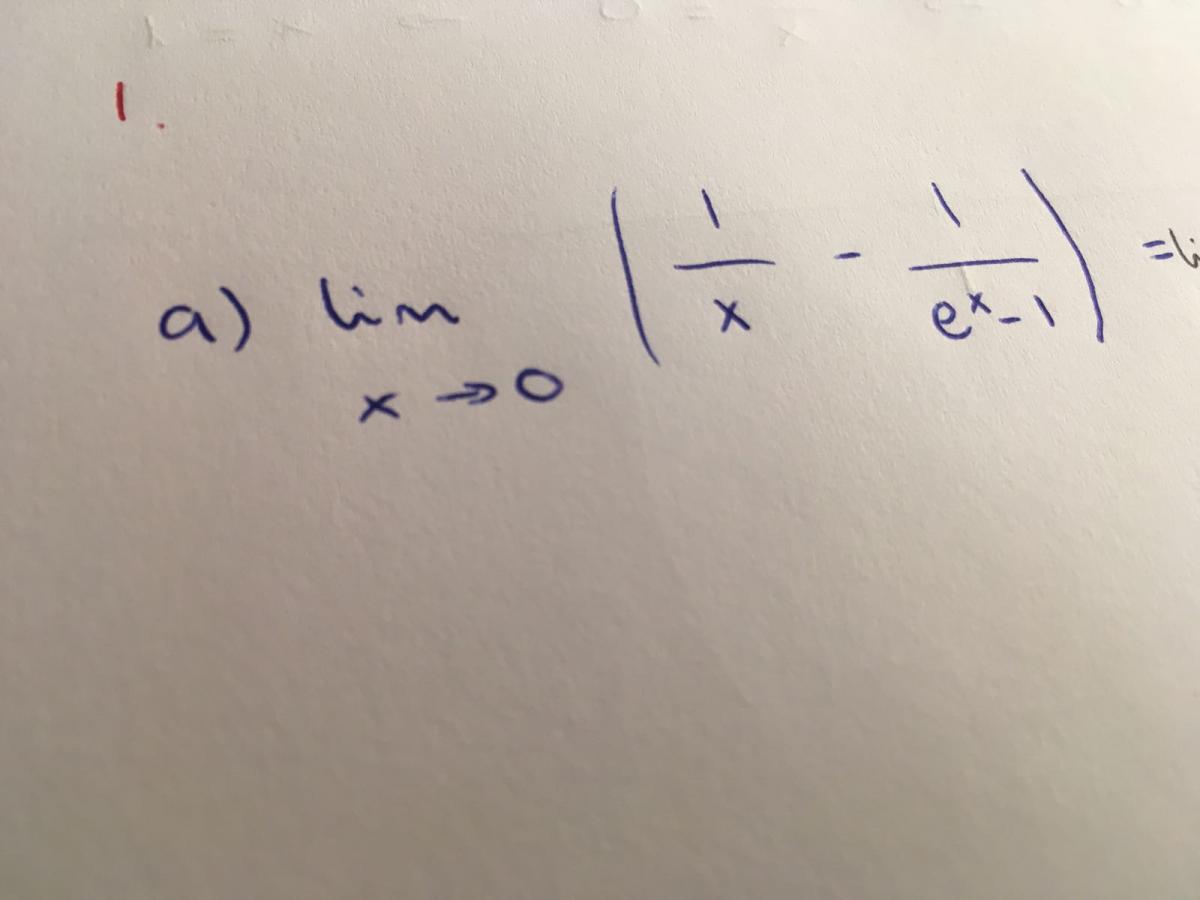 1.
a) lim x→0 ( 1/x - 1/(eˣ-1) ) =